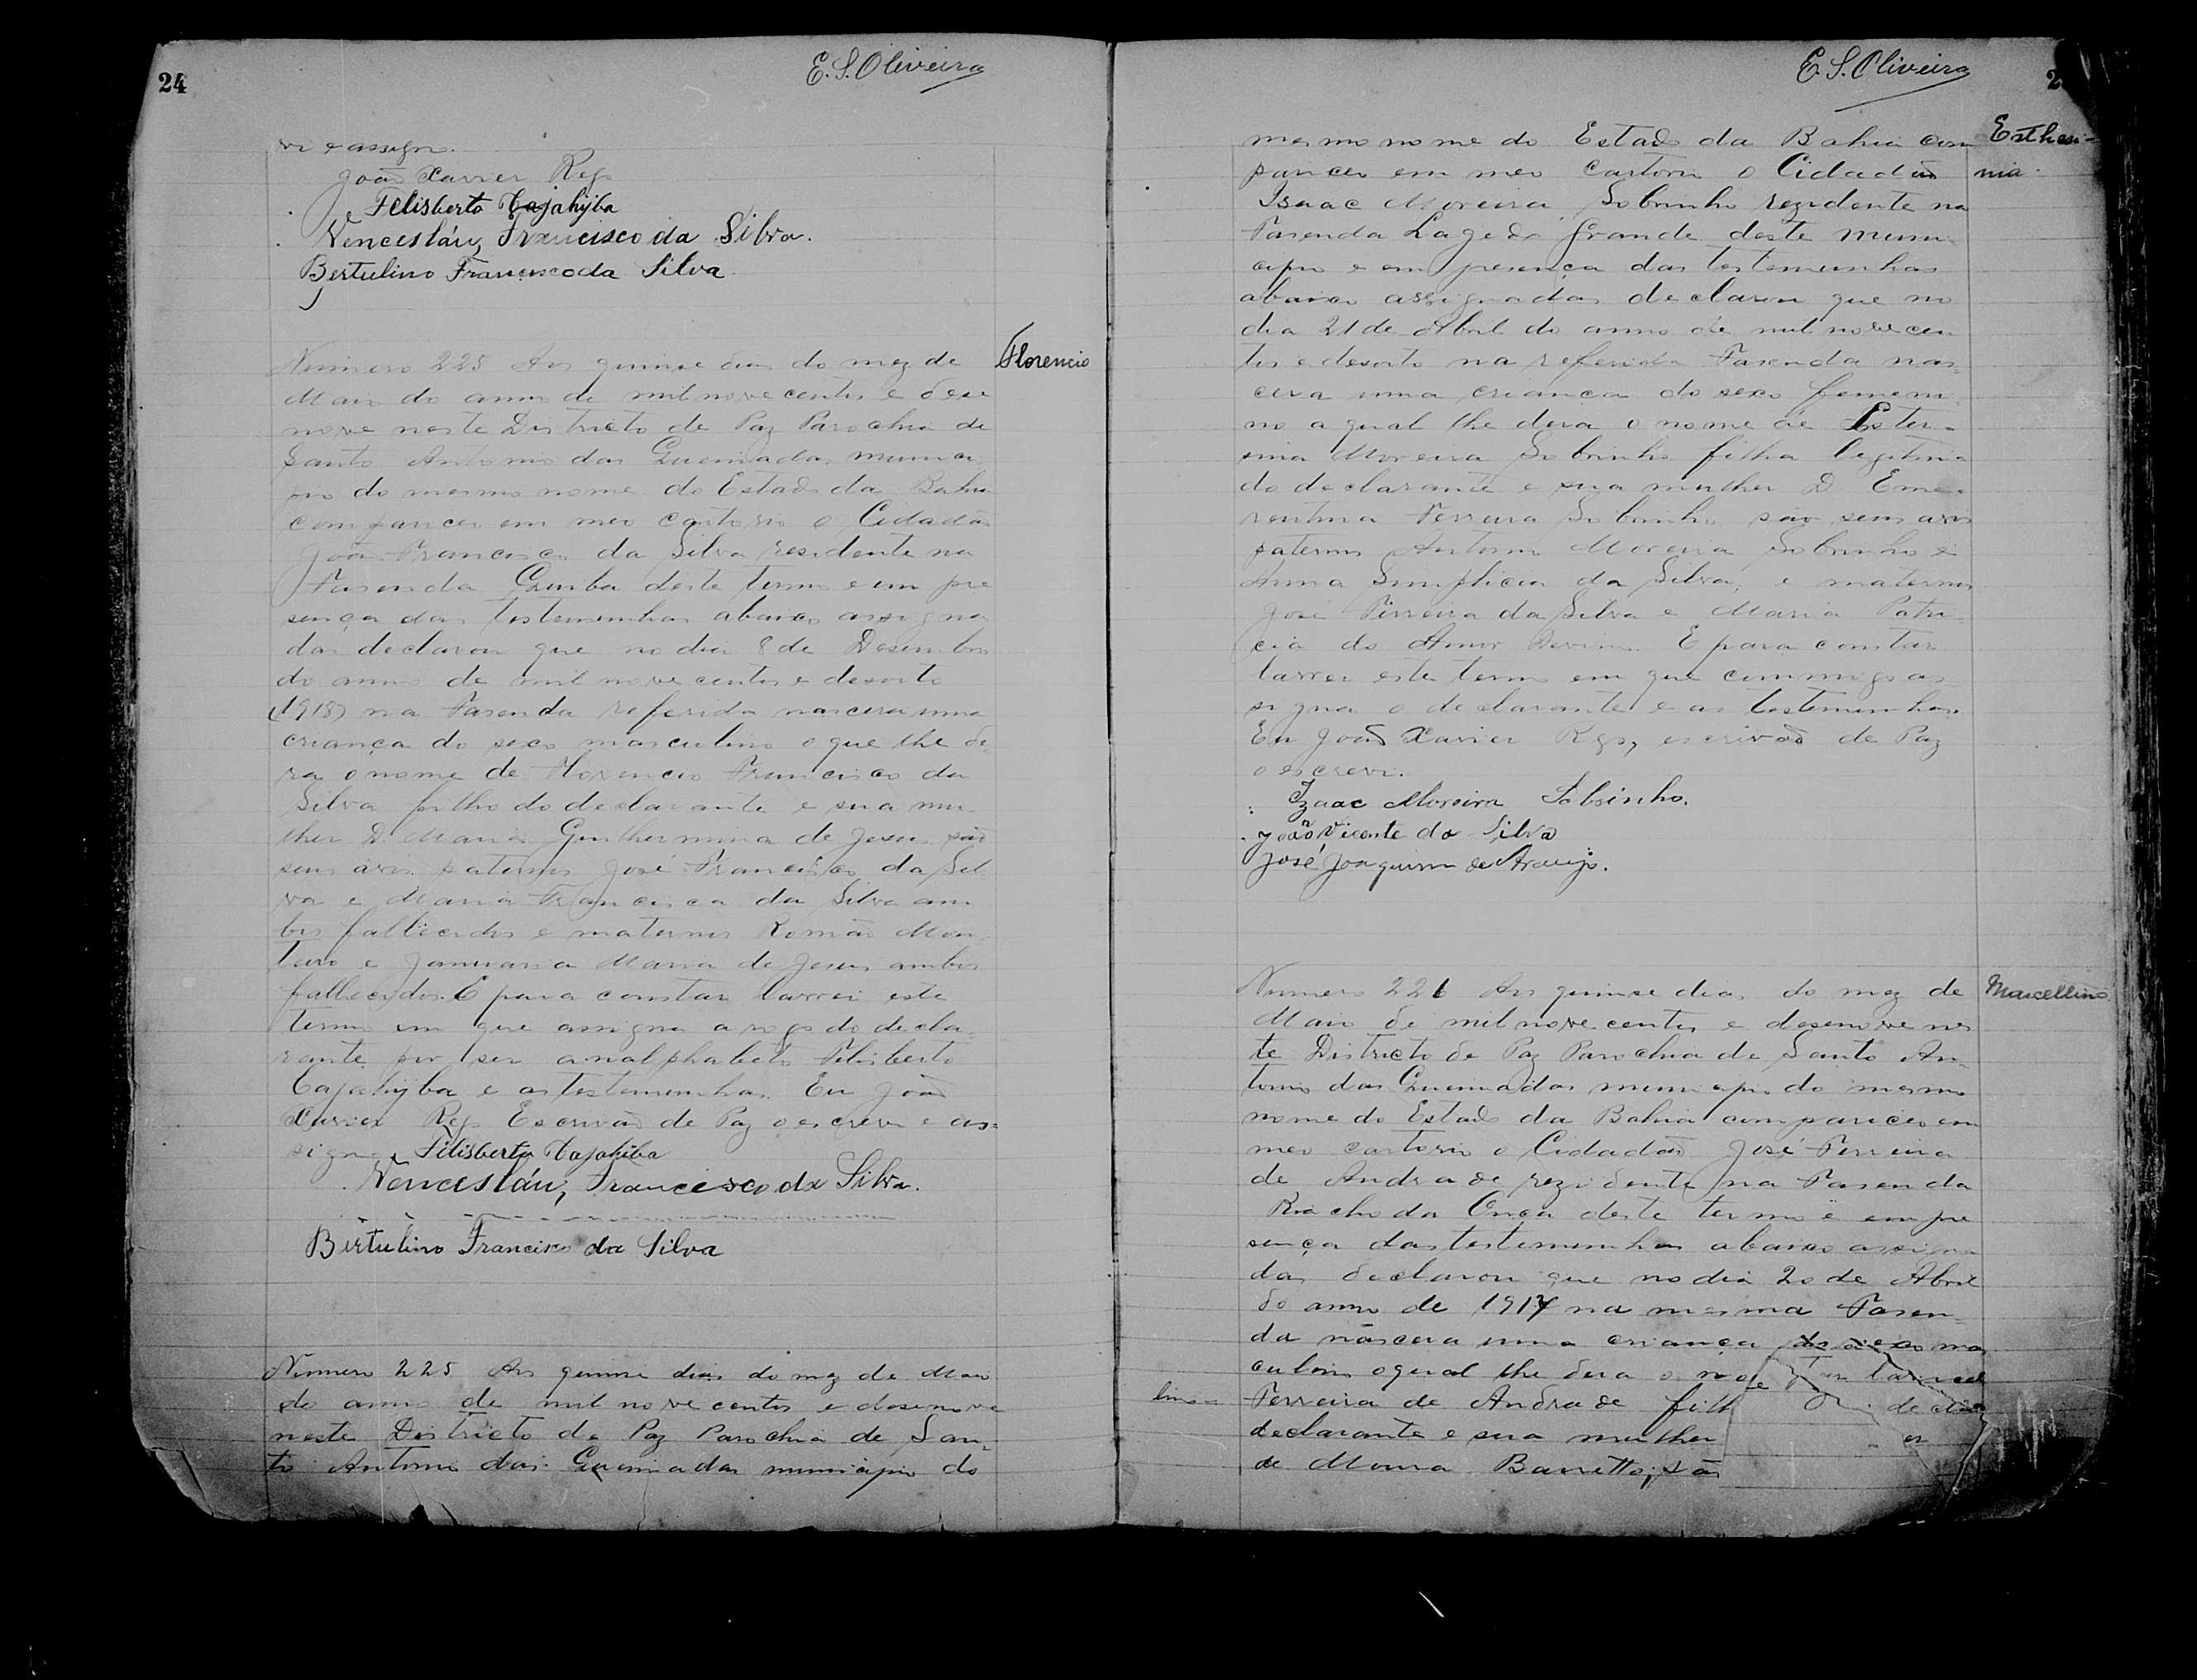 24
E. S. Oliveira
vi e assigno.
João Xavier Rego
Felisberto Cajahyba
Vencesláu, Francisco da Silva.
Bertulino Francisco da Silva
Florencio
Numero 225 Aos quinse dias do mez de
Maio do anno de mil novecentos e dese
nove neste Districto de Paz Parochia de
Santo Antonio das Queimadas munici
pio do mesmo nome do Estado da Bahia
compareceu em meo cartorio o Cidadão
João Francisco da Silva residente na
Fasenda deste termo e em pre
sença das testemunhas abaixo assigna
das declarou que no dia 8 de Desembro
do anno de mil novecentos e desoito
(1918) na Fasenda referida nascera uma
criança do sexo masculino o que lhe de
ra o nome de Florencio Francisco da
Silva filho do declarante e sua mu-
lher D. Maria Guilhermina de Jesus são
seus avós paternos José Francisco da Sil
va e Maria Francisca da Silva am
bos fallecidos e maternos Romão Mon
teiro e Januaria Maria de Jesus ambos
fallecidos. E para constar lavrei este
termo em que assigna a rogo do decla-
rante por ser analphabeto Felisberto
Cajahyba e as testemunhas. Eu João
Xavier Rego Escrivão de Paz o escrevi e as-
signo. Felisberto Cajahiba
Vencesláu, Francisco da Silva.
Bertulino Francisco da Silva
Numero 225 Aos quinse dias do mez de Maio
do anno de mil novecentos e desenove
neste Districto de Paz Parochia de San-
to Antonio das Queimadas municipio do
E. S. Oliveira
mesmo nome do Estado da Bahia com
pareceu em meo Cartorio o Cidadão
Isaac Moreira Sobrinho rezidente na
Fasenda Lagedo Grande deste muni-
cipio e em presença das testemunhas
abaixo assignadas declarou que no
dia 21 de Abril do anno de mil novecen
tos e desoito na referida Fasenda nas-
cera uma criança do sexo femeni
no a qual lhe dera o nome de Ester-
inia Moreira Sobrinho filha legitima
do declarante e sua mulher D. Eme-
rentina Ferreira Sobrinho são seus avós
paternos Antonio Moreira Sobrinho e
Anna Simplicia da Silva, e maternos
José Ferreira da Silva e Maria Patri-
cia do Amor Devino. E para constar
lavrei este termo em que commigo as-
signa o declarante e as testemunhas.
Eu João Xavier Rego, escrivão de Paz
o escrevi.
Izaac Moreira Sobrinho.
João Vicente da Silva
José Joaquim de Araujo.
Numero 226 Aos quinse dias do mez de
Maio de mil novecentos e desenove nes
te Districto de Paz Parochia de Santo An-
tonio das Queimadas municipio do mesmo
nome do Estado da Bahia compareceu em
meo cartorio o Cidadão José Ferreira
de Andrade rezidente na Fasenda
Riacho da Onça deste termo e em pre
sença das testemunhas abaixo assigna
das declarou que no dia 20 de Abril
do anno de 1917 na mesma Fasen-
da nascera uma criança do sexo mas
culino o qual lhe dera o
lino = Ferreira de Andrade
declarante e sua mulher
de Moura Barretto, são
Marcellino